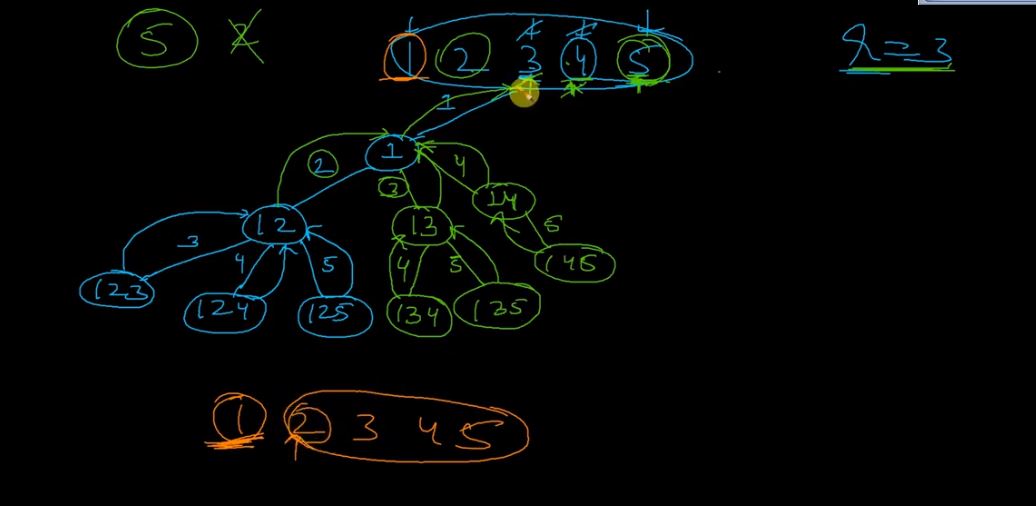 5 2 1 2 3 4 5 r=3
1
1
2 3 4
12 13 14
3 4 5 4 5 5
123 124 125 134 135 145
1 2 3 4 5